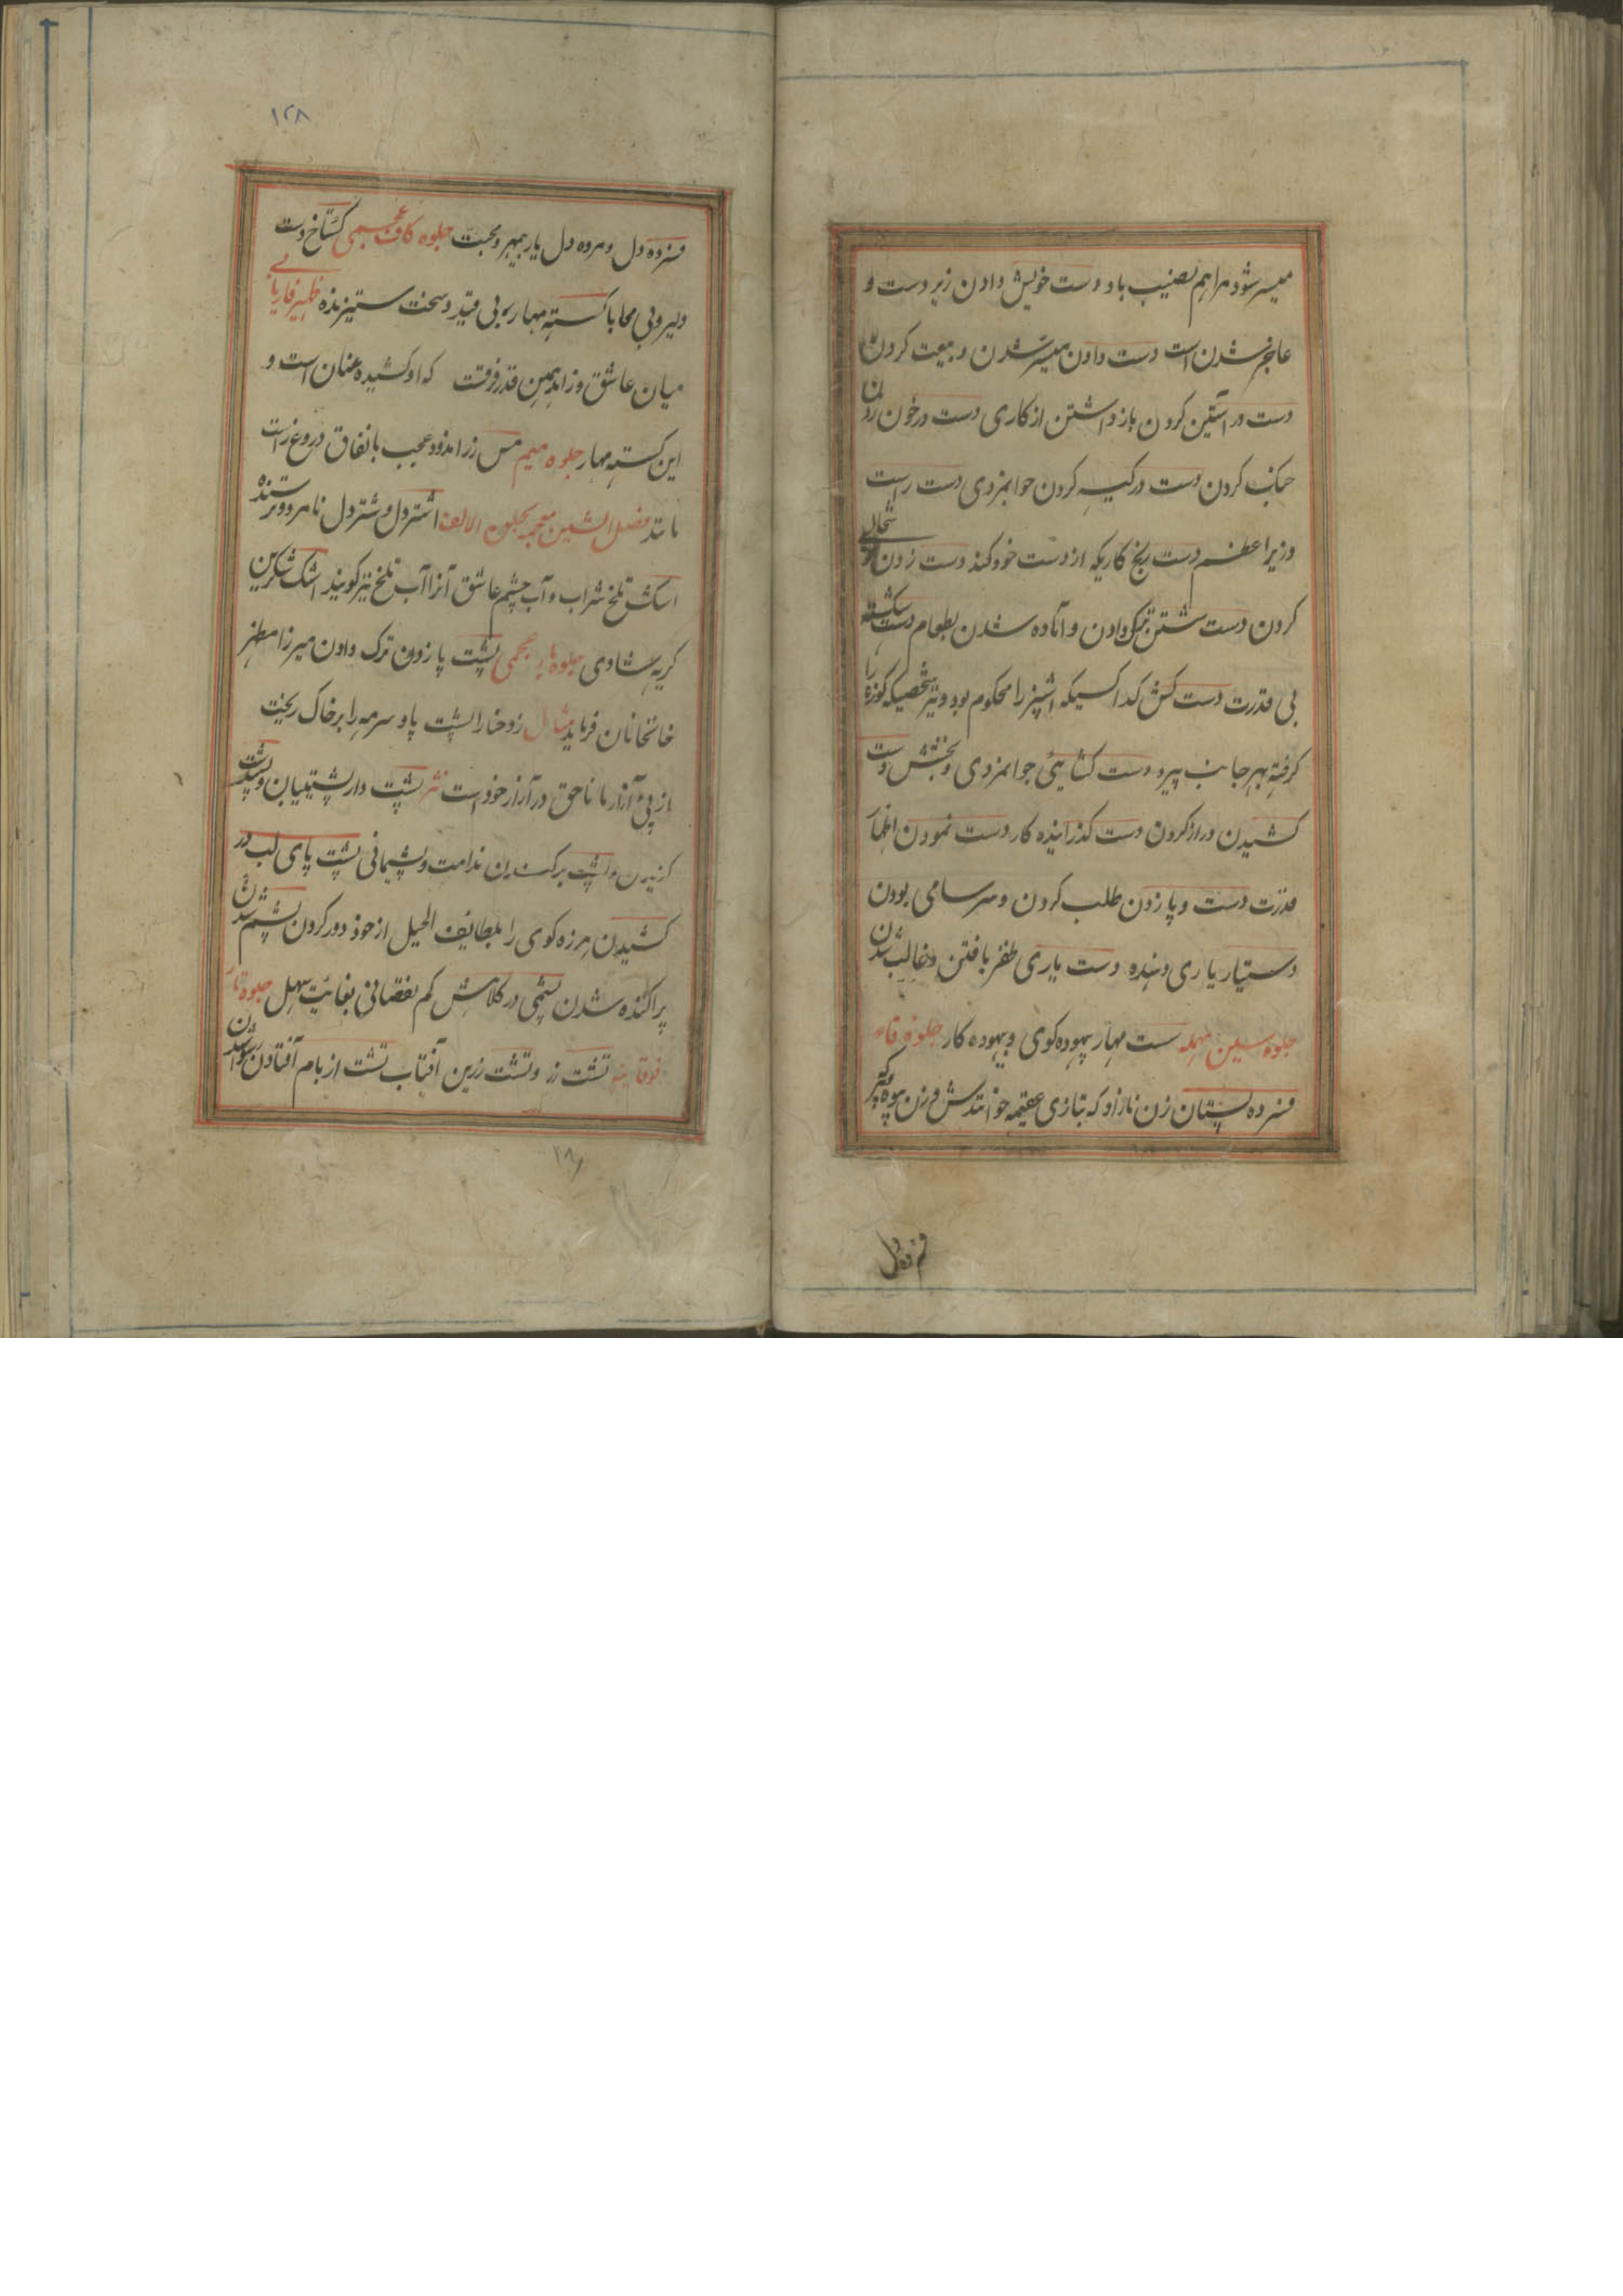 میسر شود مرا هم نصیب باد دست خویش دادن زیردست و
عاجز شدن است دست دادن میسر شدن و بیعت کردن
دست در آستین کردن باز داشتن از کاری دست در خون زدن
جنک کردن دست در کیسه کردن جوانمردی دست راست
وزیر اعظم دست رنج کاریکه از دست خود کنند دست زدن
کردن دست شستن ترک دادن و آماده شدن بطعام دست شکسته
بی قدرت دست کش کدا کسیکه را محکوم بود و نیز شخصیکه کوزه را
کرفته بهر جانب ببرد دست کشایی جوانمردی و بخشش دست
کشیدن دراز کردن دست کذر اینده کار دست نمودن اظهار
قدرت دست و پا زدن طلب کردن و سراسامی بودن
دستیار یاری دهنده دست یاری ظفر یافتن و غالب شدن
جلوه سین مهمله سست مهار بیهوده کوی و بیهوده کار جلوه فاء
فسرده پستان زن نازاد که بتازی عقیمه خوانندش و زن بیوه
فسرده دل
۱۲۸
فسرده دل و مرده دل یار بیمهر و محبت جلوه کاف عجمی کستاخ دست
دلیر و بی محابا کسسته مهار بی قید و سخت ستیزنده ظهیر فاریابی
میان عاشق و زاهد همین قدر فرقست که او کشیده عنان است و
این کسسته مهار جلوه میم مس زر اندود عجیب با نفاق دروغ راست
مانند فصل الشین معجمه بجلوه الالف اشتر دل و شتر دل نامرد و ترسنده
اشک تلخ شراب و آب چشم عاشق آنرا آب تلخ نیز کویند اشک شکرین
کریه شادی جلوه باء عجمی پشت پا زدن ترک دادن میرزا مظهر
خانخانان فرماید مثال زد حنا را پشت پا و سرمه را بر خاک ریخت
از پی آزار ما ناحق در آزار خود است نثر پشت دار پشتیبان و پشت
کزیدن و پشت بر کندن ندامت و پشیمانی پشت پای لب در
کشیدن هرزه کوی را بلطایف الحیل از خود دور کردن پشم شدن
پراکنده شدن پشمی در کلاهش کم نقصانی بغایت سهل جلوه تاء
فوقانیه تشت زر و تشت زرین آفتاب تشت از بام افتادن رسوا شدن